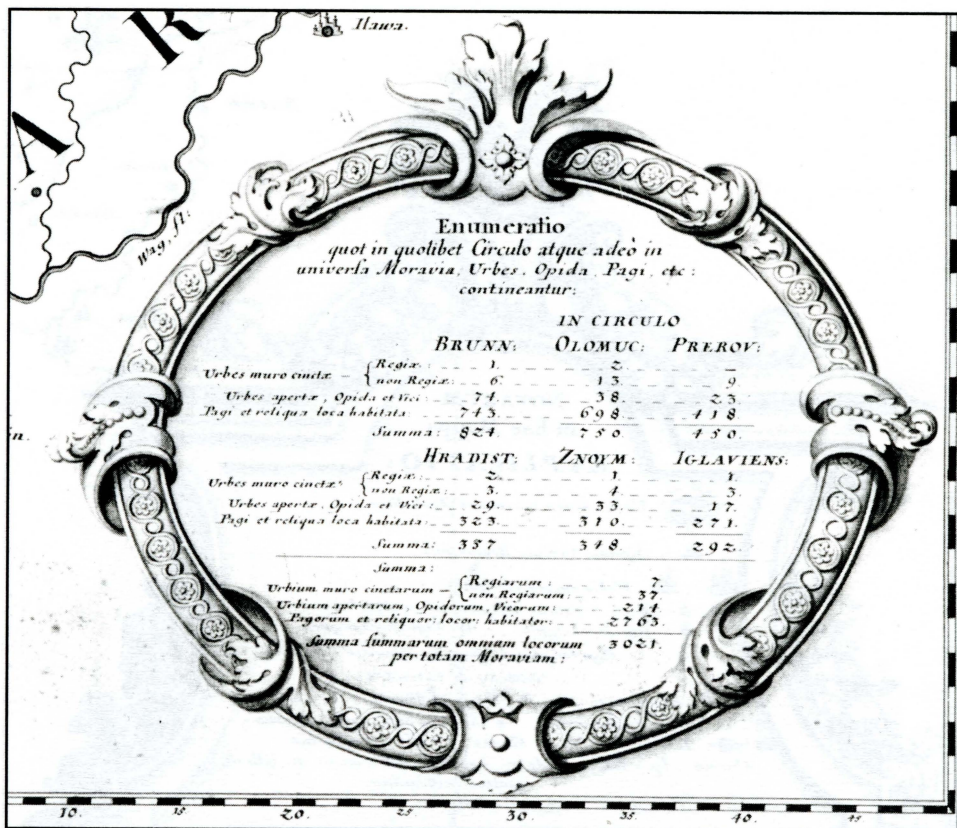 Ilawa.
A R
Wag. fl:
n.
Enumeratio
quot in quolibet Circulo atque adeò in
universa Moravia, Urbes, Opida, Pagi, etc:
contineantur:
IN CIRCULO
BRUNN: OLOMUC: PREROV:
Urbes muro cinctæ { Regiæ: 1. 2. —
non Regiæ: 6. 13. 9.
Urbes apertæ, Opida et Vici: 74. 38. 23.
Pagi et reliqua loca habitata: 743. 698. 418.
Summa: 824. 750. 450.
HRADIST: ZNOYM: IGLAVIENS:
Urbes muro cinctæ { Regiæ: 2. 1. 1.
non Regiæ: 3. 4. 3.
Urbes apertæ, Opida et Vici: 29. 33. 17.
Pagi et reliqua loca habitata: 323. 310. 271.
Summa: 357 348. 292.
Summa:
Urbium muro cinctarum { Regiarum: 7.
non Regiarum: 37.
Urbium apertarum, Opidorum, Vicorum: 214.
Pagorum et reliquor: locor: habitator: 2763.
Summa summarum omnium locorum 3021.
per totam Moraviam:
10. 15. 20. 25. 30. 35. 40. 45